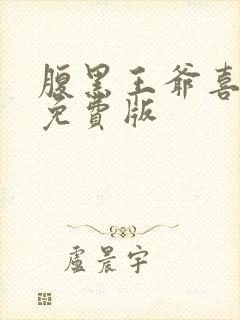 腹黑王爺喜
免費版
盧晨宇